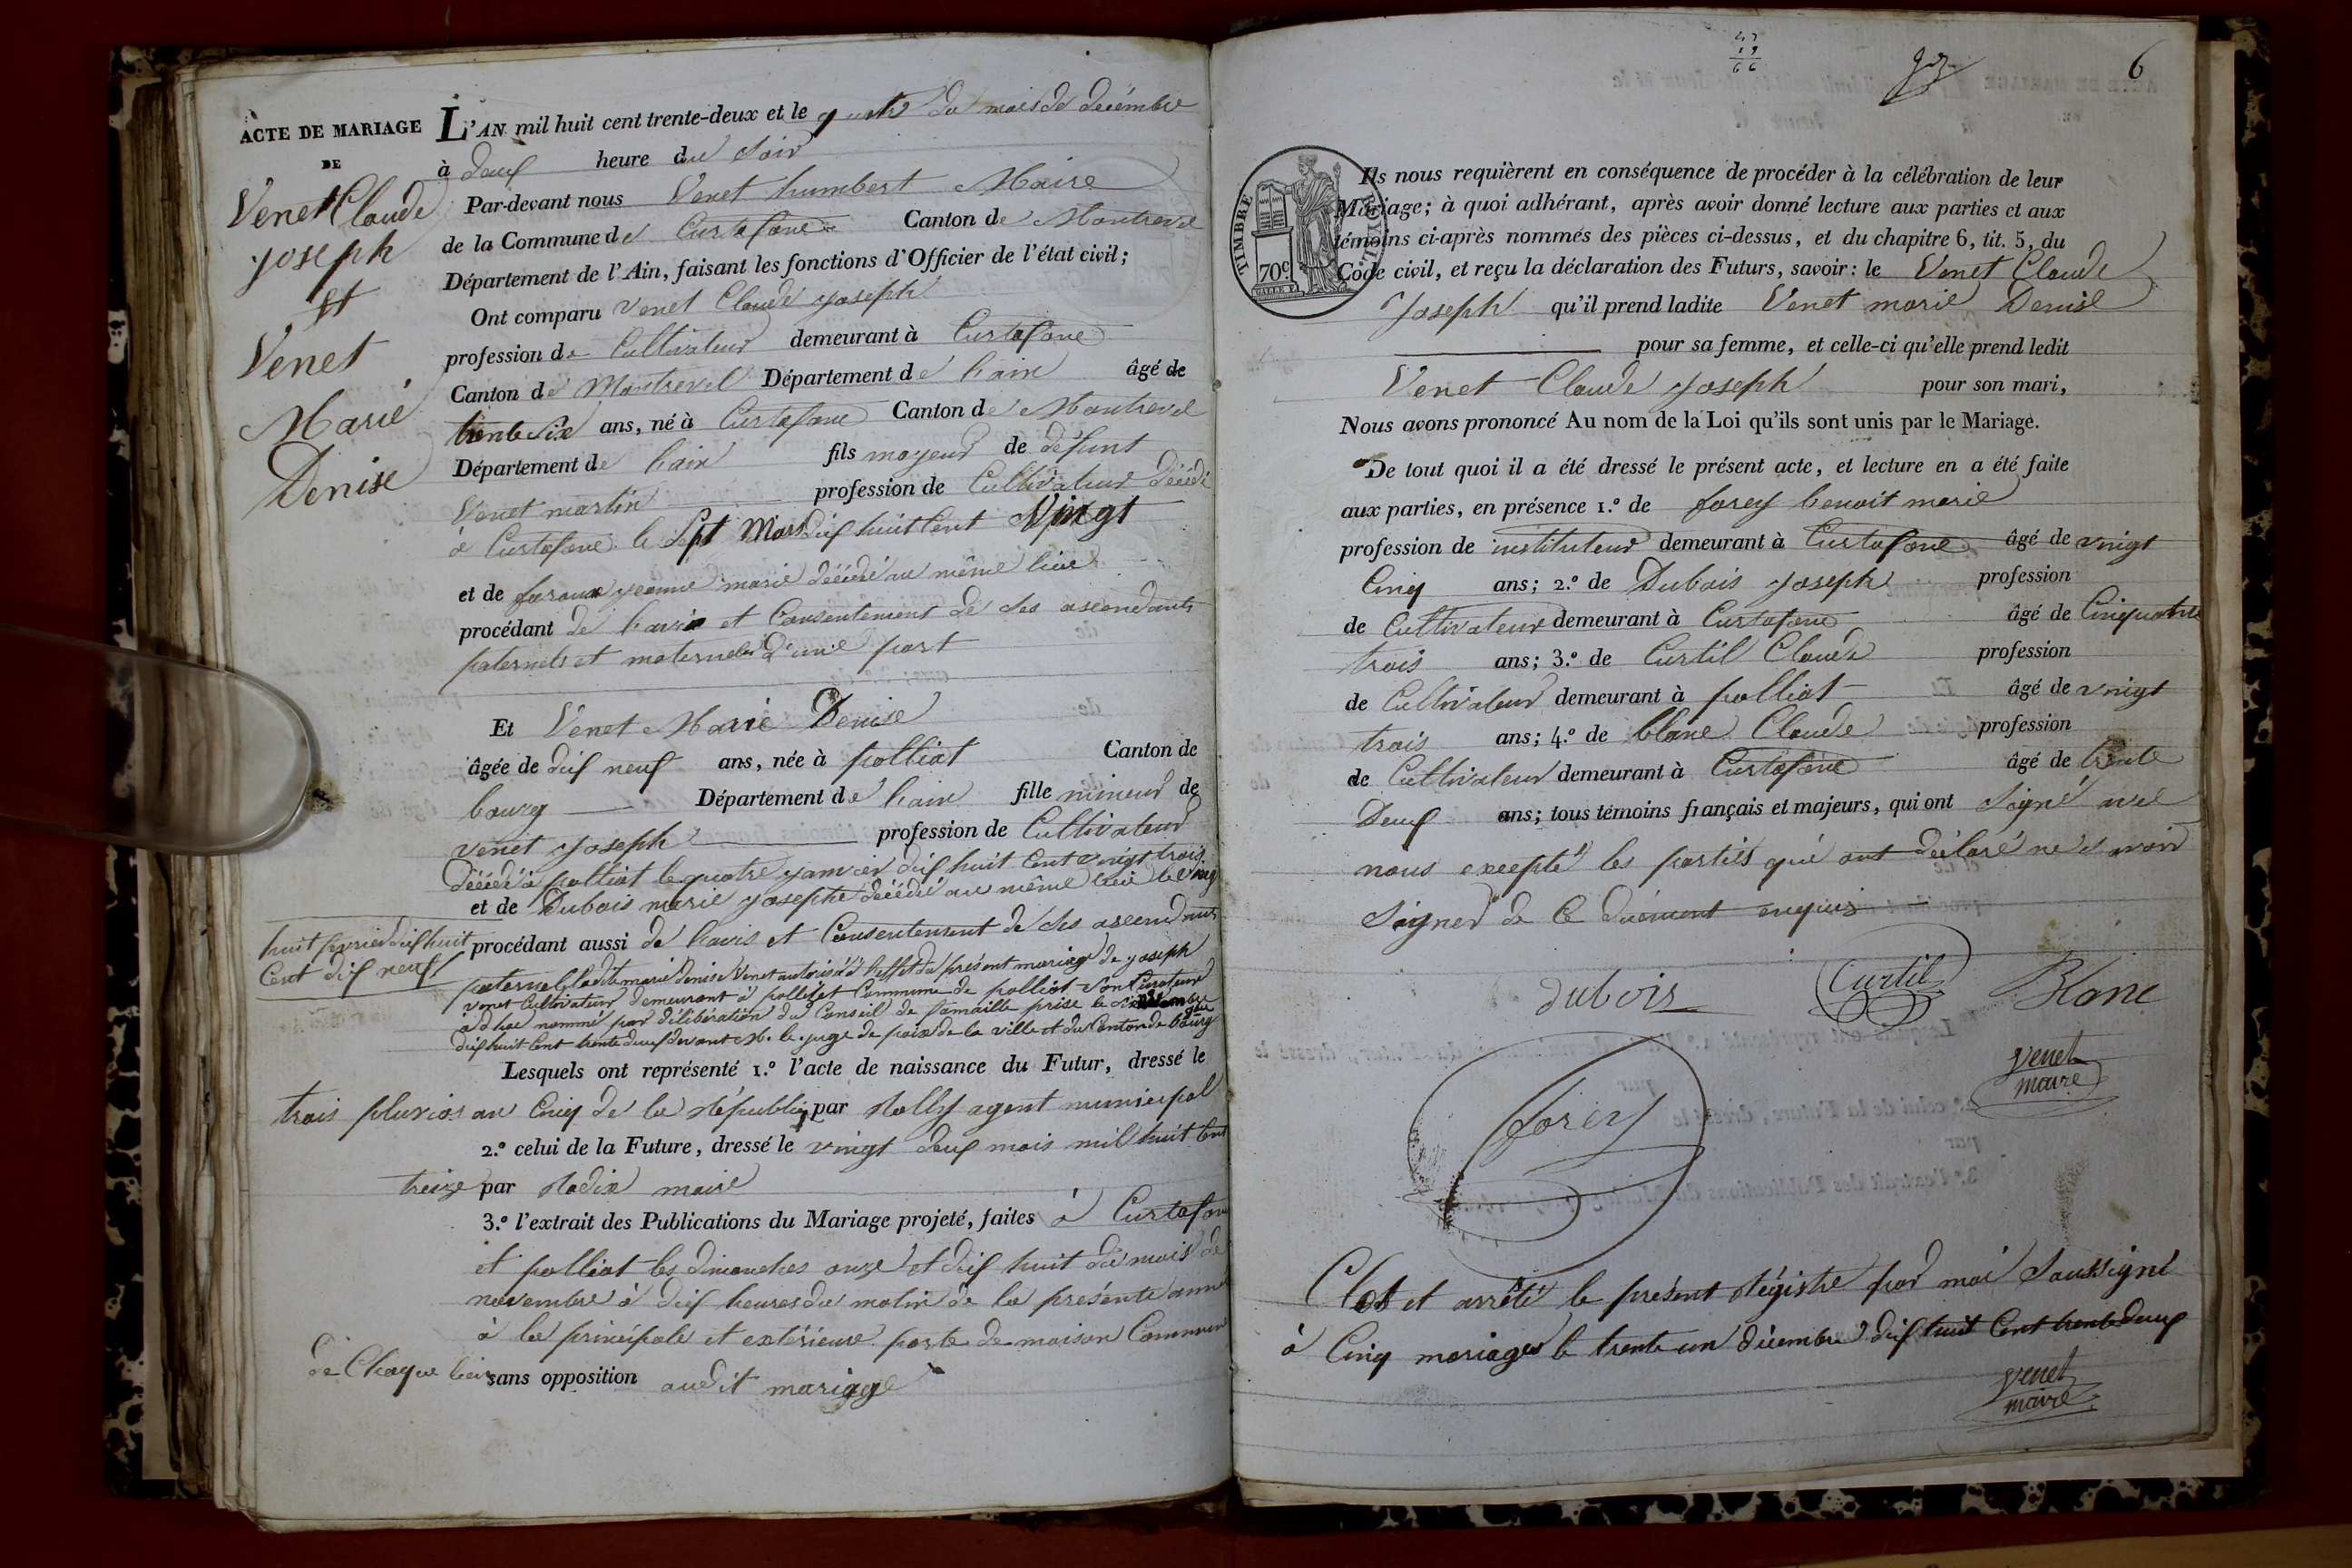 ACTE DE MARIAGE
DE
Venet Claude
joseph
Et
Venet
Marie
Denise
L'AN mil huit cent trente-deux et le du mois de decémbre
à deux heure du Soir
Par-devant nous Venet humbert Maire
de la Commune de Curtafond Canton de Montrevel
Département de l'Ain, faisant les fonctions d'Officier de l'état civil;
Ont comparu venet Claude joseph
profession de Cultivateur demeurant à Curtafond
Canton de Montrevel Département de lain âgé de
trente Six ans, né à Curtafond Canton de Montrevel
Département de lain fils majeur de défunt
Venet martin profession de Cultivateur décédé
à Curtafond le Sept Mars dix huit Cent Vingt
et de jeanne marie décédé au même lieu
procédant de lavis et Consentement de ses ascendants
paternels et maternels d'une part
Et Venet Marie Denise
âgée de dix neuf ans, née à polliat Canton de
bourg Département de lain fille mineur de
venet joseph profession de Cultivateur
décédé à polliat le quatre janvier dix huit Cent vingt trois
et de Dubois marie josephe décédé au même lieu le vingt
huit fevrier dix huit
Cent dix neuf
procédant aussi de lavis et Consentement de ses ascendants
paternel ladite marie Denise Venet autorisé à leffet du présent mariage de joseph
venet Cultivateur demeurant à polliat Commune de polliat son Curateur
ad hoc nommé par délibération du Conseil de famaille prise le
dix huit Cent trente deux devant M. le juge de paix de la ville et du Canton de bourg
Lesquels ont représenté 1.º l'acte de naissance du Futur, dressé le
trois pluvios an Cinq de la Républiq par agent municipal
2.º celui de la Future, dressé le vingt deux mois mil huit Cent
treize par maire
3.º l'extrait des Publications du Mariage projeté, faites à Curtafond
et polliat les dimanches onze et dix huit du mois de
novembre à dix heures du matin de la présente anné
à la principale et extérieure porte de maison Commune
de Chaque lieu sans opposition audit mariage
6
TIMBRE ROYAL
70c
Ils nous requièrent en conséquence de procéder à la célébration de leur
Mariage; à quoi adhérant, après avoir donné lecture aux parties et aux
témoins ci-après nommés des pièces ci-dessus, et du chapitre 6, tit. 5, du
Code civil, et reçu la déclaration des Futurs, savoir: le Venet Claude
Joseph qu'il prend ladite Venet marie Denise
pour sa femme, et celle-ci qu'elle prend ledit
Venet Claude joseph pour son mari,
Nous avons prononcé Au nom de la Loi qu'ils sont unis par le Mariage.
De tout quoi il a été dressé le présent acte, et lecture en a été faite
aux parties, en présence 1.º de forey benoit marie
profession de instituteur demeurant à Curtafond âgé de vingt
Cinq ans; 2.º de Dubois joseph profession
de Cultivateur demeurant à Curtafond âgé de Cinquatre
trois ans; 3.º de Curtil Claude profession
de Cultivateur demeurant à polliat âgé de vingt
trois ans; 4.º de blanc Claude profession
de Cultivateur demeurant à Curtafond âgé de trente
Deux ans; tous témoins français et majeurs, qui ont Signé avec
nous excepté les parties qui ont déclaré ne savoir
Signer de Ce duement enquis
dubois
Curtil
Blanc
venet
maire
forey
Clot et arrêté le présent Régistre par moi Soussigné
à Cinq mariages le trente un décembre dix huit Cent trente deux
venet
maire